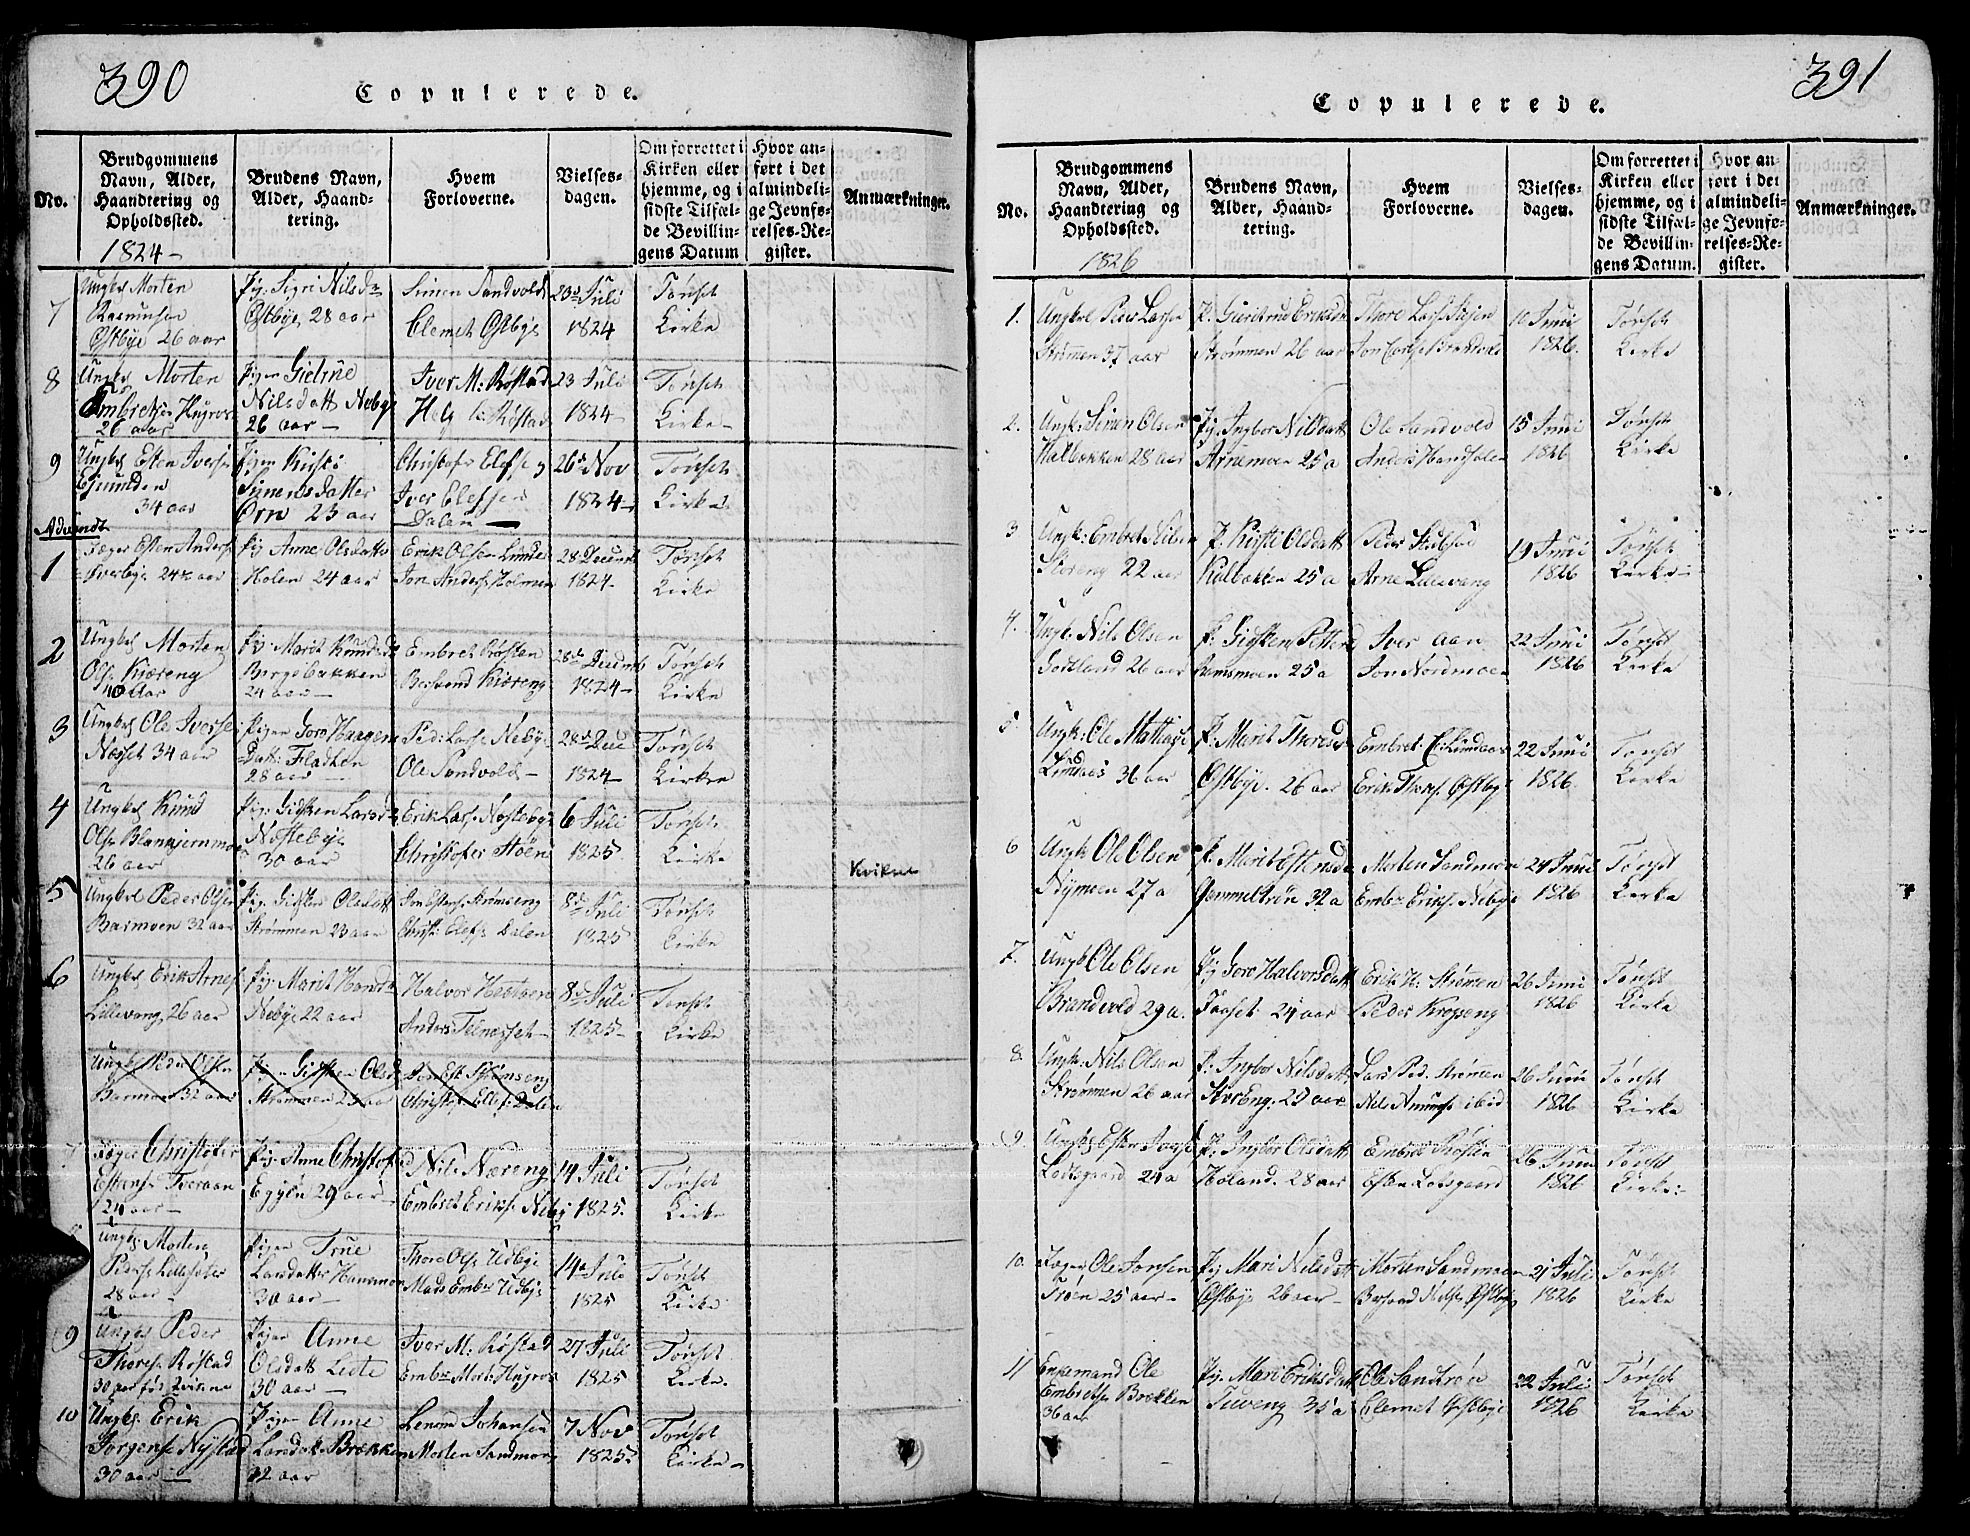 390
Copulerede.
No.
Brudgommens
Navn, Alder,
Haandtering og
Opholdssted.
1824 -
Brudens Navn,
Alder, Haand-
tering.
Hvem
Forloverne.
Vielses-
dagen.
Om forrettet i
Kirken eller
hjemme, og i
sidste Tilfæl-
de Bevillin-
gens Datum
Hvor an-
ført i det
almindeli-
ge Jevnfø-
relses-Re-
gister.
Anmærkninger.
7
Ungkl Morten
Rasmusen
Østbye 26 aar
Pig. Sigri Nilsd
Østbye, 28 aar
Simen Sandvold
Clemet Østbye
23d Juli
1824
Tønset
Kirke
8
Ungkl Morten
Embretsen
26 aar
Pigen Gieline
Nilsdatt Nebye
26 aar -
Iver M: Røstad
Røstad
23 Juli
1824
Tønset
Kirke -
9
Ungkl Esten Iversen
34 aar
Pigen Kirsti
Simensdatter
Ørn 23 aar
Christofer Elefsen
Iver Elefsen
Dalen -
26d Nov
1824 -
Tønset
Kirke
Advendt
1
Jæger Esten Anders
Øverbye 24 aar
Pig Anne Olsdatter
Holen 24 aar
Erik Olsen Lunde
Jon Anders Holmen
28 Decemb
1824 -
Tønset
Kirke
2
Ungkl Morten
Ols Kiæreng
40 Aar
Pig. Marit Knudsd
Bergebakken
24 aar -
Embret Røsten
Bersvend Kiæreng
28d Decemb
1824 -
Tønset
Kirke
3
Ungkl Ole Iverse
Næsset 34 aar
Pigen Goro Haagen
Datt: Fladhøn
28 aar -
Ped: Lars Nebye
Ole Sandvold -
28d Dec
1824 -
Tønset
Kirke
4
Ungkl Knud
26 aar
Pig. Gidsken Larsd
Nøstebye
30 aar
Erik Lars Nøstebye
Christofer Støen
6 Juli
1825
Tønset
Kirke
Kvikne
5
Ungkl Peder Olsen
Barmoen 32 aar
Pig. Gidsken Olsdatt
Strømmen 23 aar
Jon Esters Strømseng
Christ: Elefs Dalen
8d Juli
1825
Tønset
Kirke
6
Ungkl Erik Arnes
Lillevang 26 aar
Pig Marit Hansd
Nebye 22 aar
Halvor
Anders Telnesset -
8d Juli
1825
Tønset
Kirke
Ungkl Peder Olsen
Barmoen 32 aar
Pigen Gidsken Olsd
Strømmen 23 aar
Strømseng
Christof Ellefs Dalen
7
Jæger Christofer
Estens Tveraan
24 aar -
Pig. Anne Christof
Eggen 29 aar -
Nils Næreng
Embret Eriks Nebye
14 Juli
1825.
Tønset
Kirke
Ungkl Morten
Peders Lillesæter
28 aar -
Pigen True
Larsdatter Hammon
30 aar -
Thore Ols Udbye
Mads Emb: Udbye
14d Juli
1825
Tønset
Kirke
9
Ungkl Peder
Thores Røstad
30 aar
Pigen Anne
Olsdatt
30 aar -
Iver M: Røstad
Emb: Mort:
27 Juli
1825
Tønset
Kirke.
10
Ungkl Erik
Jørgens Nystad
30 aar -
Pigen Anne
Larsdatt Brækken
32 aar
Johansen
Morten Sandmoen
7 Nov
1825
Tønset
Kirke -
391
Copulerede.
No.
Brudgommens
Navn, Alder,
Haandtering og
Opholdssted.
1826
Brudens Navn,
Alder, Haand-
tering.
Hvem
Forloverne.
Vielses-
dagen.
Om forrettet i
Kirken eller
hjemme, og i
sidste Tilfæl-
de Bevillin-
gens Datum.
Hvor an-
ført i det
almindeli-
ge Jevnfø-
relses-Re-
gister.
Anmærkninger.
1.
Ungkl Peder Larsen
Strømmen 37 aar
P. Giertrud Eriksd
Strømmen 26 aar
Thore Lars
10 Juni
1826.
Tønset
Kirke
2.
Ungk: Simen Olsen
Kalbækken 28 aar
Pig. Ingbor Nilsdatt
Arnemoen 25 a
Ole Sandvold
Anders
15 Juni
1826
Tønset
Kirke
3
Ungk: Embret Nilsen
Storeng 22 aar
P. Kirsti Olsdatt
Kalbækken 25 a
Peder
Arne Lillevang
19 Juni
1826
Tønset
Kirke -
4.
Ungk: Nils Olsen
26 aar
P. Gidsken Petters
Ramsmoen 25 a
Iver Aan
Jon Nordmoen
22 Juni
1826
Tønset
Kirke
5
Ungk: Ole Mattias
Lindaas 36 aar
P. Marit Thoresd
Østbye. 26 aar
Embret E: Lindaas
Erik Thores Østby
22 Juni
1826
Tønset
Kirke
6
Ungk Ole Olsen
Nymoen 27 a
P. Marit Estensd
Gammeltrøn 32 a
Morten Sandmoen
Emb: Eriks Nebye
24 Juni
1826
Tønset
Kirke
7.
Ungk Ole Olsen
Brandvold 29 a.
Pig Goro Halvorsdatt
Faaset 24 aar
Erik H: Strømen
Peder Krogseng
26 Juni
1826
Tønset
Kirke
8.
Ungk: Nils Olsen
Strømmen 26 aar
P. Ingbor Nilsdatt
Storeng. 23 aar
Lars Ped. Strømen
26 Juni
1826
Tønset
Kirke
9.
24 a
P. Ingbor Olsdatt
Holand. 28 aar
Embret Røsten
Esten
26 Juni
1826
Tønset
Kirke:-
10.
Jæger Ole Jonsen
Trøen 25 aar -
Pig Mari Nilsdatt
Østbye 26 aar -
Morten Sandmoen
Bersvend Nils Østbye
21 Juli
1826
Tønset
Kirke
11
Enkemand Ole
Embrets Brækken
36 aar
Pig. Mari Eriksdatt
Tuveng 35 a
Ole Sandtrøn
Clemet Østbye
22 Juli
1826
Tønset
Kirke